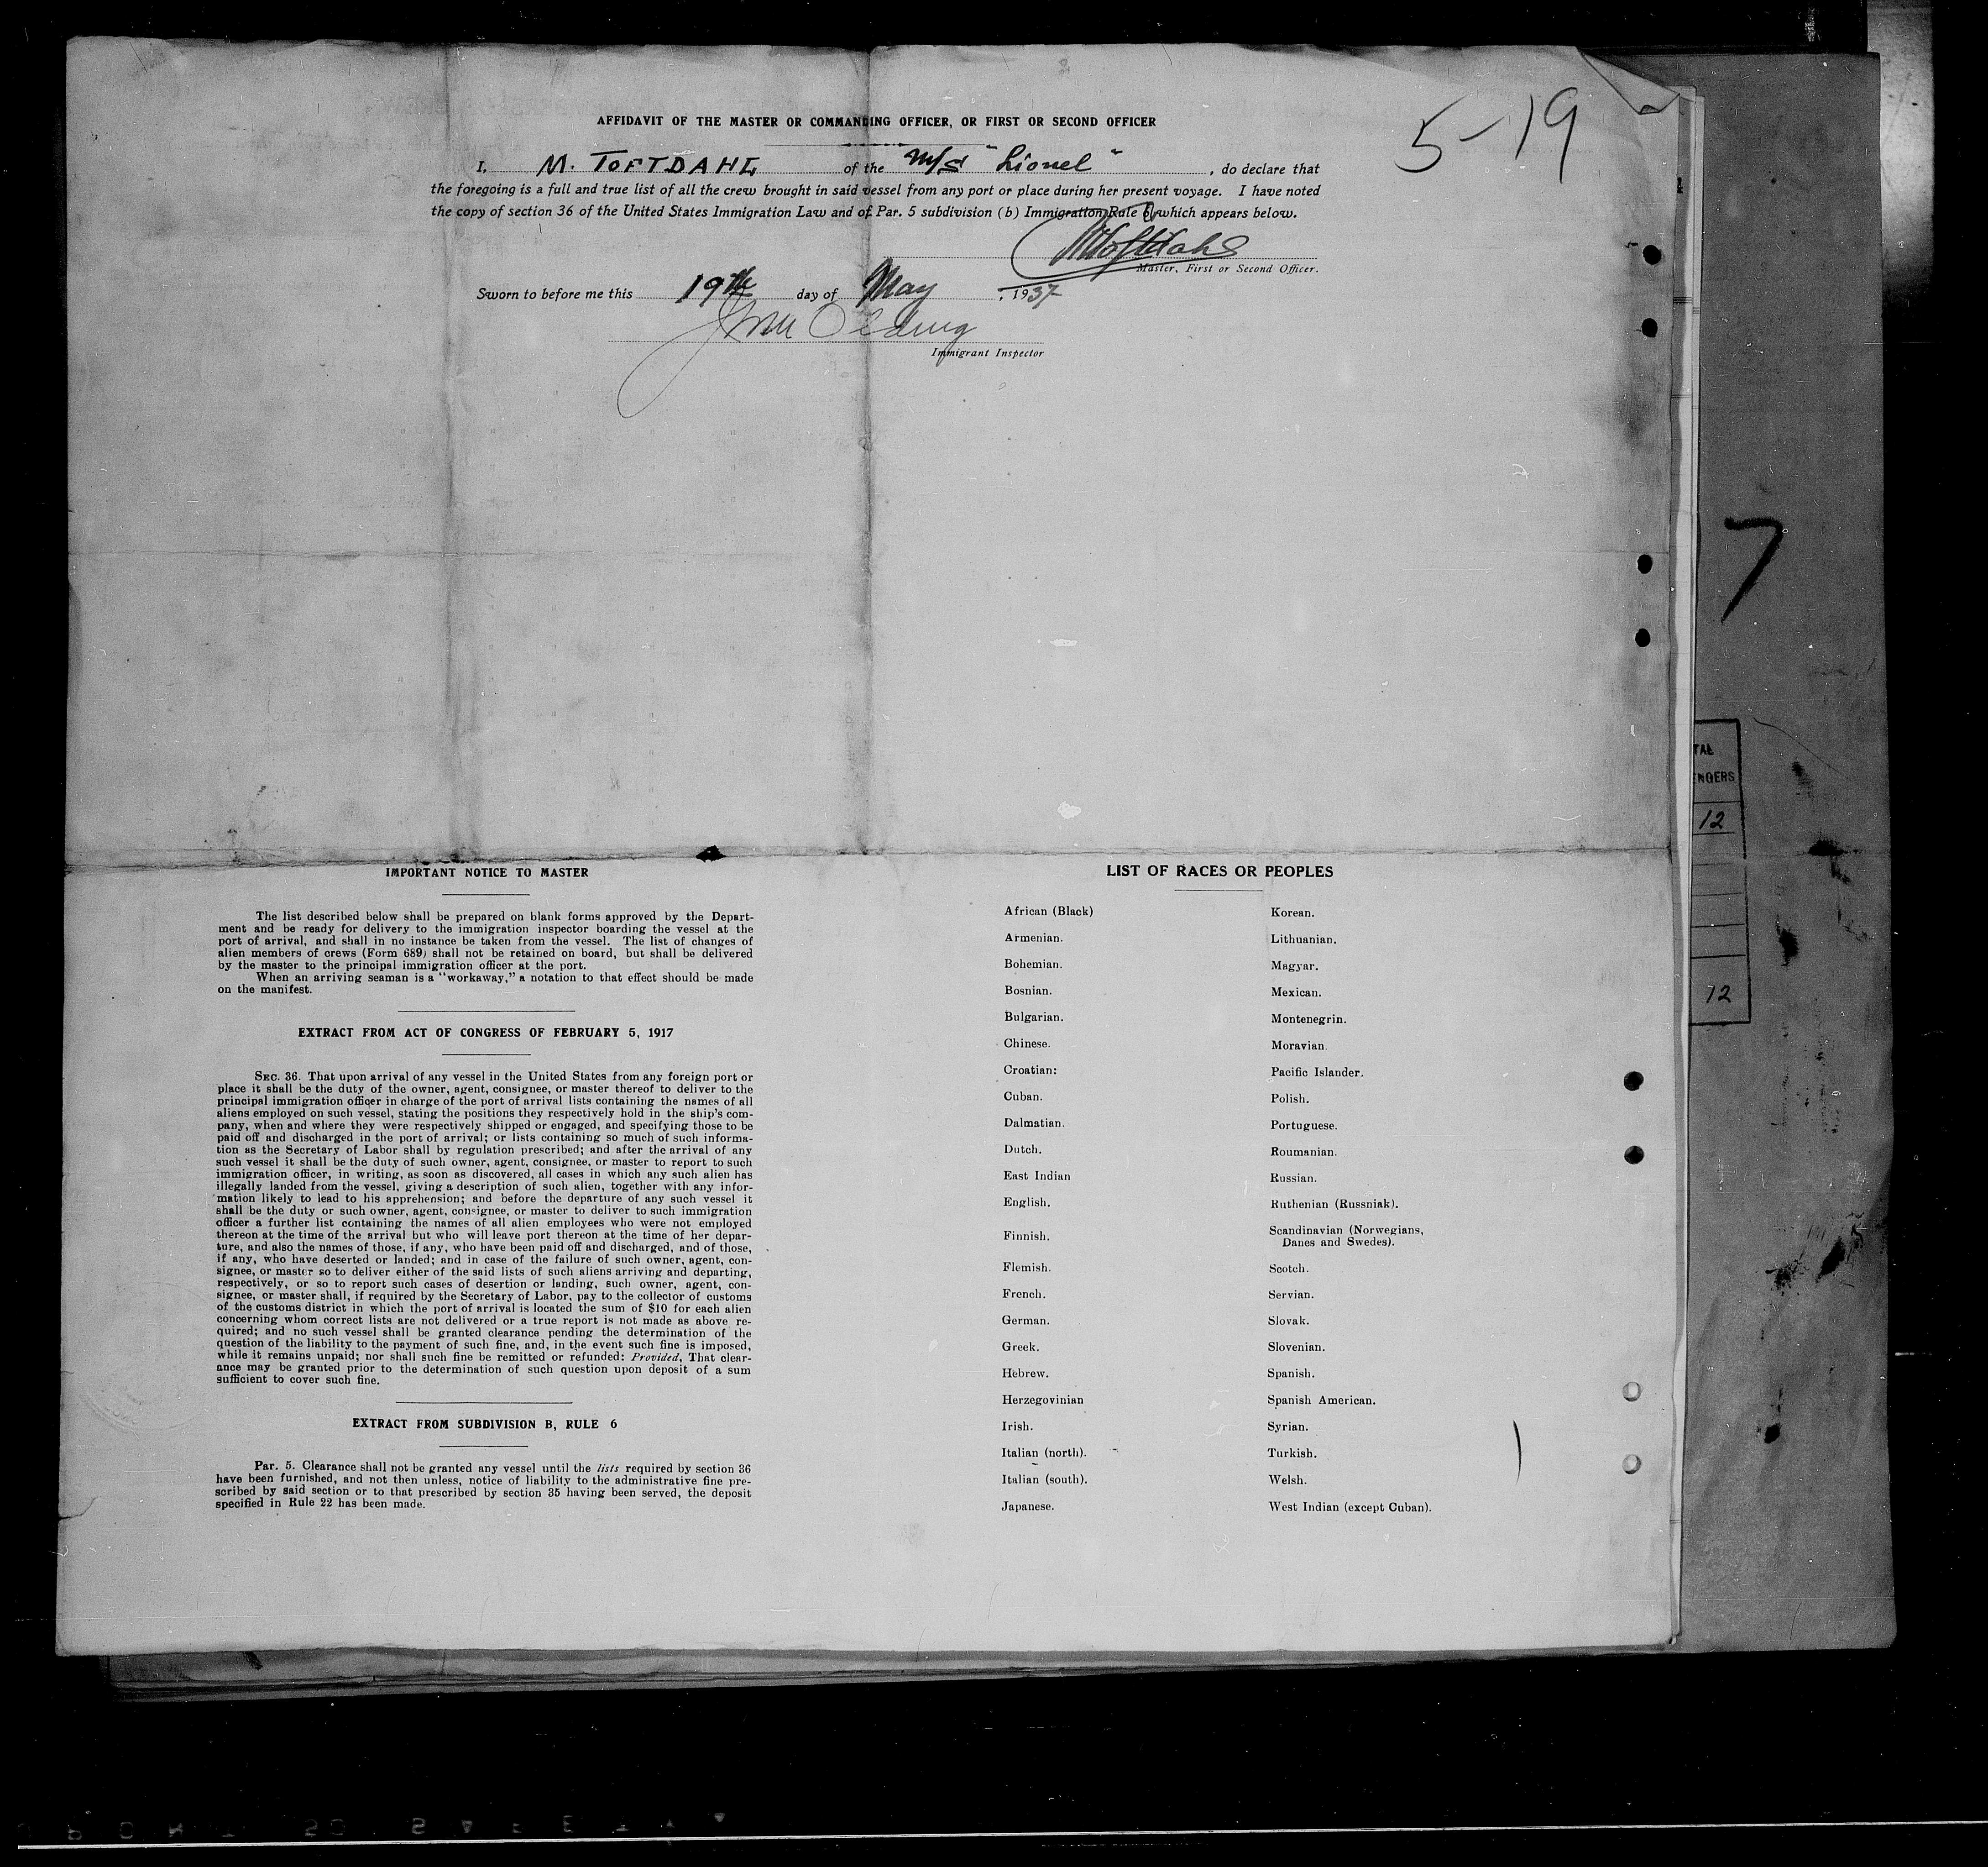 5-19
AFFIDAVIT OF THE MASTER OR COMMANDING OFFICER, OR FIRST OR SECOND OFFICER
I, M. TOFTDAHL of the M/S "Lionel", do declare that
the foregoing is a full and true list of all the crew brought in said vessel from any port or place during her present voyage. I have noted
the copy of section 36 of the United States Immigration Law and of Par. 5 subdivision (b) Immigration Rule 6, which appears below.
MToftdahl
Master, First or Second Officer.
Sworn to before me this 19th day of May, 1937
Immigrant Inspector
7
TAL
NGERS
12
12
IMPORTANT NOTICE TO MASTER
The list described below shall be prepared on blank forms approved by the Depart-
ment and be ready for delivery to the immigration inspector boarding the vessel at the
port of arrival, and shall in no instance be taken from the vessel. The list of changes of
alien members of crews (Form 689) shall not be retained on board, but shall be delivered
by the master to the principal immigration officer at the port.
When an arriving seaman is a "workaway," a notation to that effect should be made
on the manifest.
EXTRACT FROM ACT OF CONGRESS OF FEBRUARY 5, 1917
SEC. 36. That upon arrival of any vessel in the United States from any foreign port or
place it shall be the duty of the owner, agent, consignee, or master thereof to deliver to the
principal immigration officer in charge of the port of arrival lists containing the names of all
aliens employed on such vessel, stating the positions they respectively hold in the ship's com-
pany, when and where they were respectively shipped or engaged, and specifying those to be
paid off and discharged in the port of arrival; or lists containing so much of such informa-
tion as the Secretary of Labor shall by regulation prescribed; and after the arrival of any
such vessel it shall be the duty of such owner, agent, consignee, or master to report to such
immigration officer, in writing, as soon as discovered, all cases in which any such alien has
illegally landed from the vessel, giving a description of such alien, together with any infor-
mation likely to lead to his apprehension; and before the departure of any such vessel it
shall be the duty or such owner, agent, consignee, or master to deliver to such immigration
officer a further list containing the names of all alien employees who were not employed
thereon at the time of the arrival but who will leave port thereon at the time of her depar-
ture, and also the names of those, if any, who have been paid off and discharged, and of those,
if any, who have deserted or landed; and in case of the failure of such owner, agent, con-
signee, or master so to deliver either of the said lists of such aliens arriving and departing,
respectively, or so to report such cases of desertion or landing, such owner, agent, con-
signee, or master shall, if required by the Secretary of Labor, pay to the collector of customs
of the customs district in which the port of arrival is located the sum of $10 for each alien
concerning whom correct lists are not delivered or a true report is not made as above re-
quired; and no such vessel shall be granted clearance pending the determination of the
question of the liability to the payment of such fine, and, in the event such fine is imposed,
while it remains unpaid; nor shall such fine be remitted or refunded: Provided, That clear-
ance may be granted prior to the determination of such question upon deposit of a sum
sufficient to cover such fine.
EXTRACT FROM SUBDIVISION B, RULE 6
Par. 5. Clearance shall not be granted any vessel until the lists required by section 36
have been furnished, and not then unless, notice of liability to the administrative fine pre-
scribed by said section or to that prescribed by section 35 having been served, the deposit
specified in Rule 22 has been made.
LIST OF RACES OR PEOPLES
African (Black)
Armenian.
Bohemian.
Bosnian.
Bulgarian.
Chinese.
Croatian:
Cuban.
Dalmatian.
Dutch.
East Indian
English.
Finnish.
Flemish.
French.
German.
Greek.
Hebrew.
Herzegovinian
Irish.
Italian (north).
Italian (south).
Japanese.
Korean.
Lithuanian.
Magyar.
Mexican.
Montenegrin.
Moravian.
Pacific Islander.
Polish.
Portuguese.
Roumanian.
Russian.
Ruthenian (Russniak).
Scandinavian (Norwegians,
Danes and Swedes).
Scotch.
Servian.
Slovak.
Slovenian.
Spanish.
Spanish American.
Syrian.
Turkish.
Welsh.
West Indian (except Cuban).